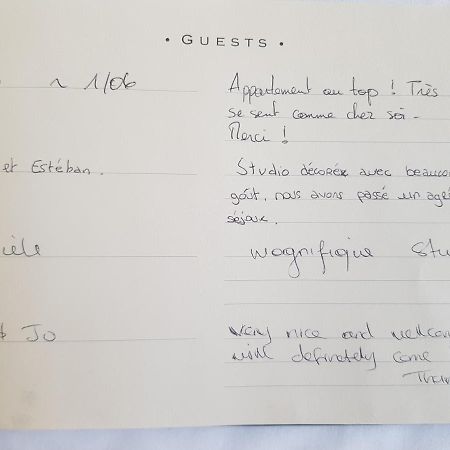 • GUESTS •
~ 1/06
Appartement au top ! Très
se sent comme chez soi -
Merci !
et Estéban.
Studio décorée avec
goût, nous avons passé un
séjour.
magnifique
& Jo
very nice and
will definately come